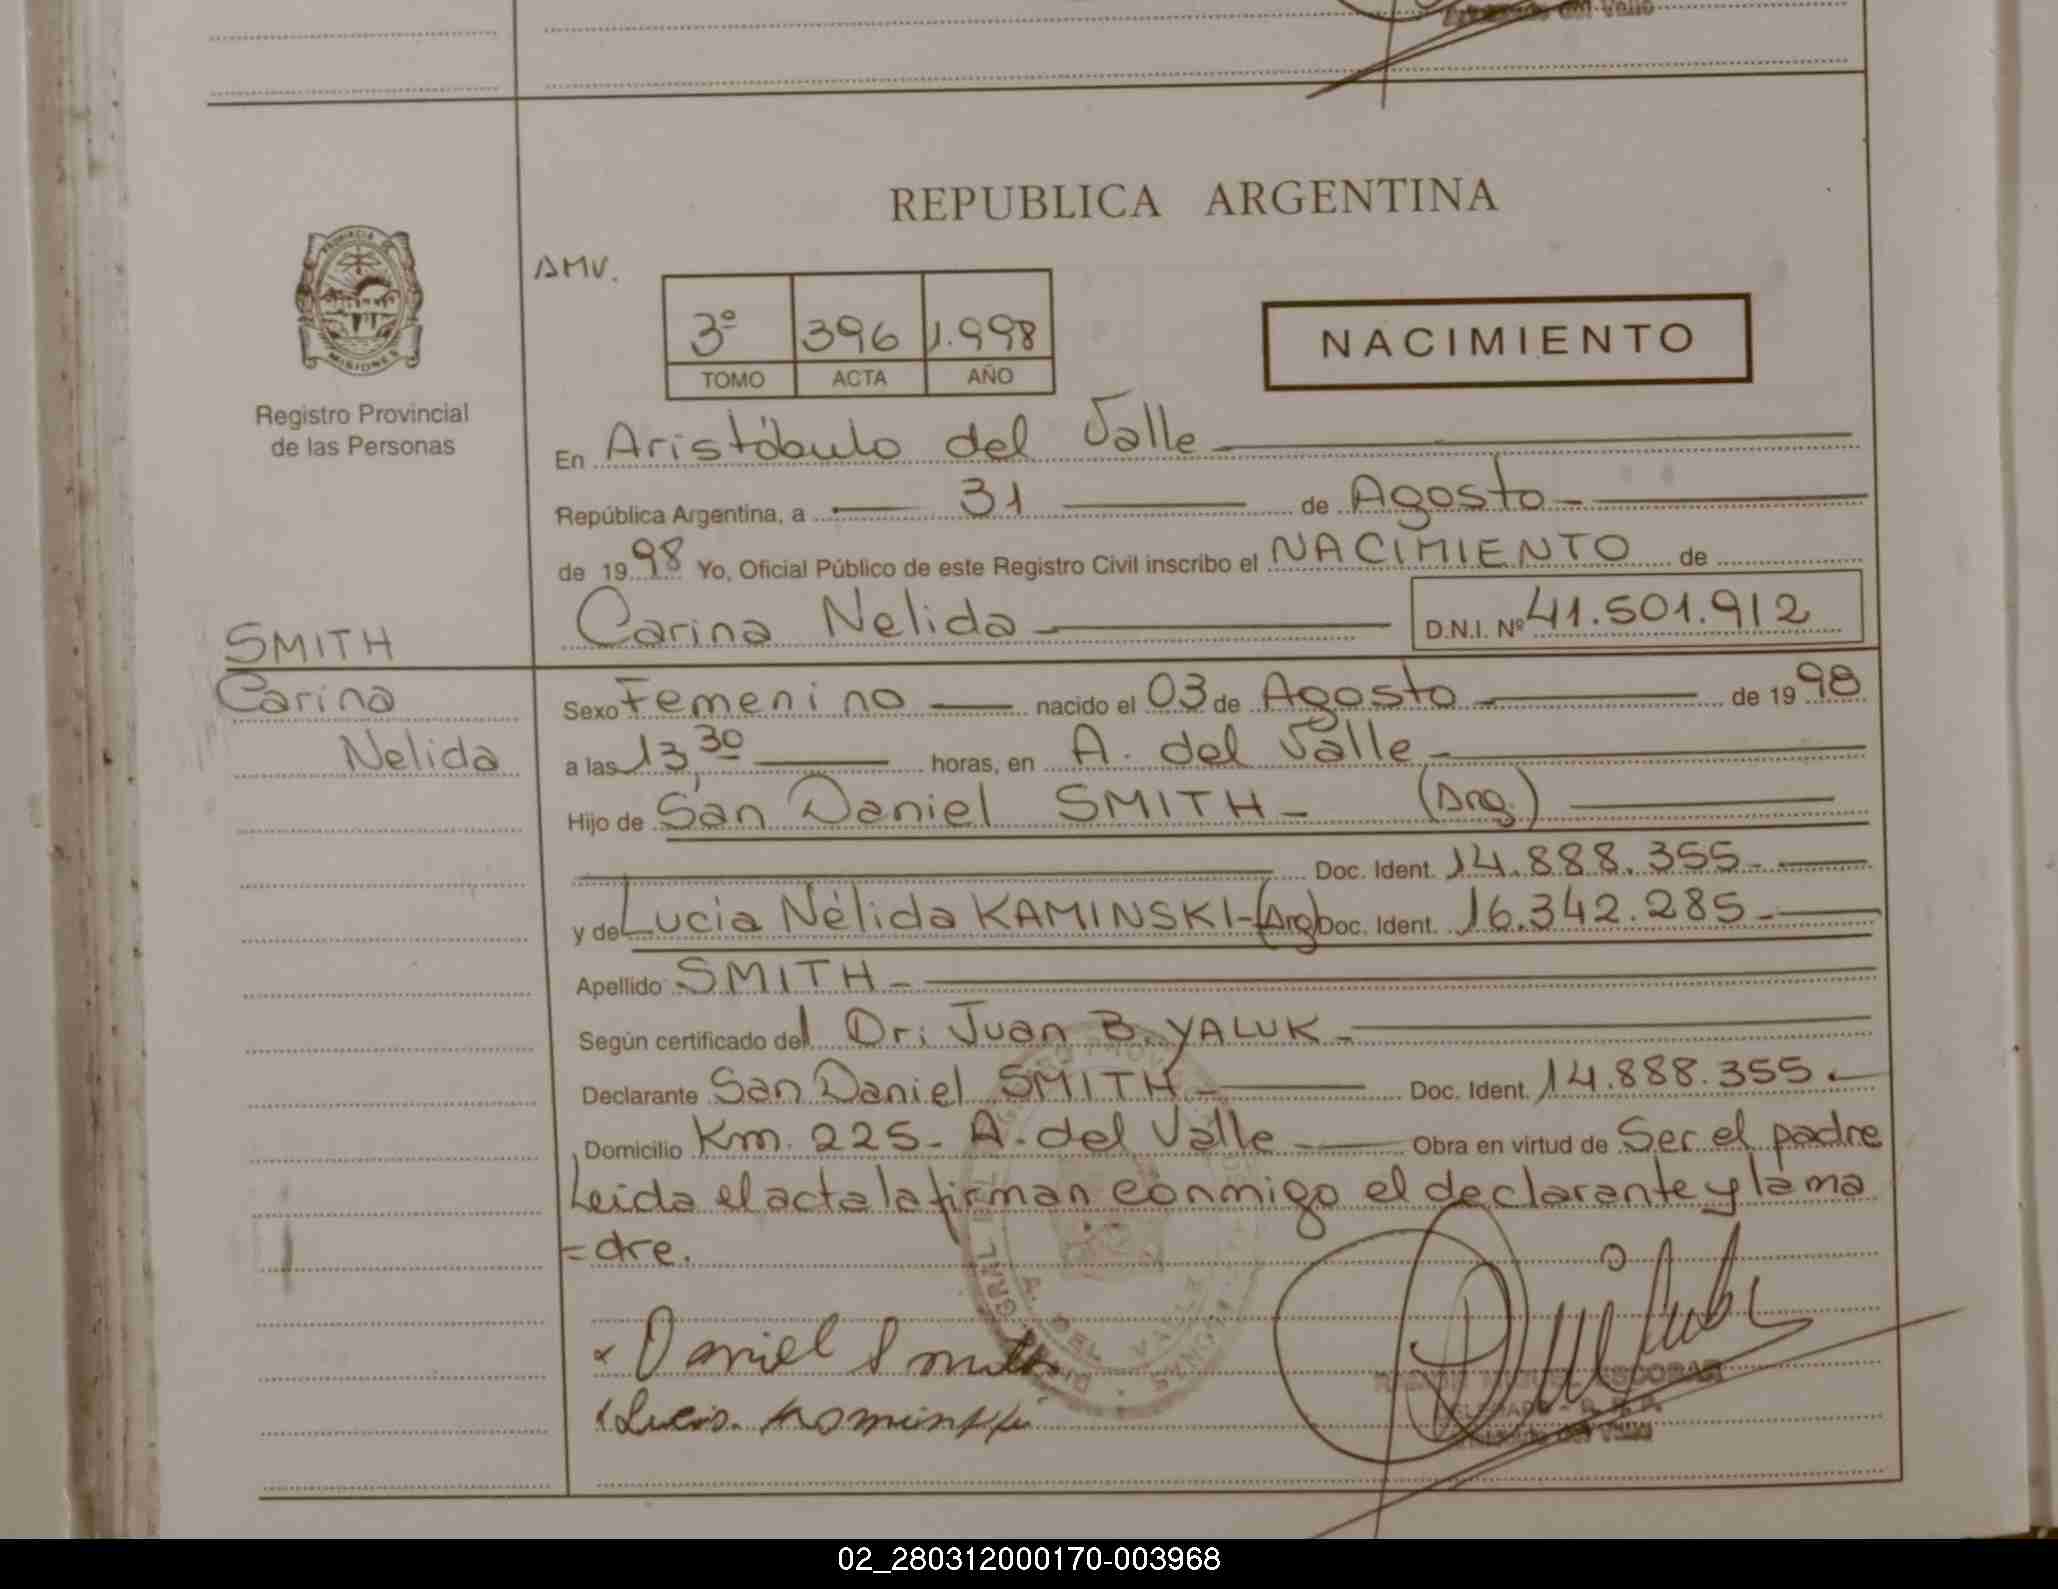 del Valle
REPUBLICA ARGENTINA
PROVINCIA DE
MISIONES
AMV.
3º 396 1.998
TOMO ACTA AÑO
NACIMIENTO
Registro Provincial
de las Personas
En Aristóbulo del Valle
República Argentina, a 31 de Agosto
de 1998 Yo, Oficial Público de este Registro Civil inscribo el NACIMIENTO de
Carina Nelida D.N.I. Nº 41.501.912
SMITH
Carina
Nelida
Sexo Femenino nacido el 03 de Agosto de 1998
a las 13,30 horas, en A. del Valle
Hijo de San Daniel SMITH - (Arg.)
Doc. Ident. 14.888.355-
y de Lucia Nélida KAMINSKI-(Arg) Doc. Ident. 16.342.285-
Apellido SMITH -
Según certificado del Dr: Juan B. YALUK -
Declarante San Daniel SMITH - Doc. Ident. 14.888.355.
Domicilio Km. 225- A. del Valle Obra en virtud de Ser el padre
Leida el acta la firman conmigo el declarante y la ma
=dre.
x Daniel Smith
Lucia Kaminski
ESCOBAR
del Valle
A. DEL VALLE
02_280312000170-003968